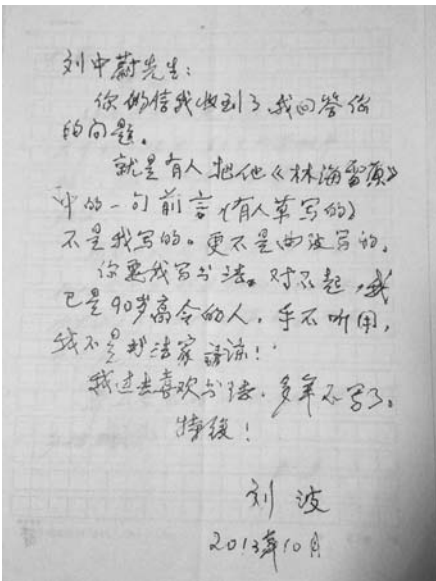 刘中蔚先生：
你的信我收到了，我回答你
的问题。
就是有人把他《林海雪原》
中的一句前言（有人草写的）
不是我写的。更不是曲波写的。
你要我写书法。对不起，我
已是90岁高令的人，手不听用，
我不是书法家 请谅！
我过去喜欢书法，多年不写了。
特复！
刘 波
2013年10月